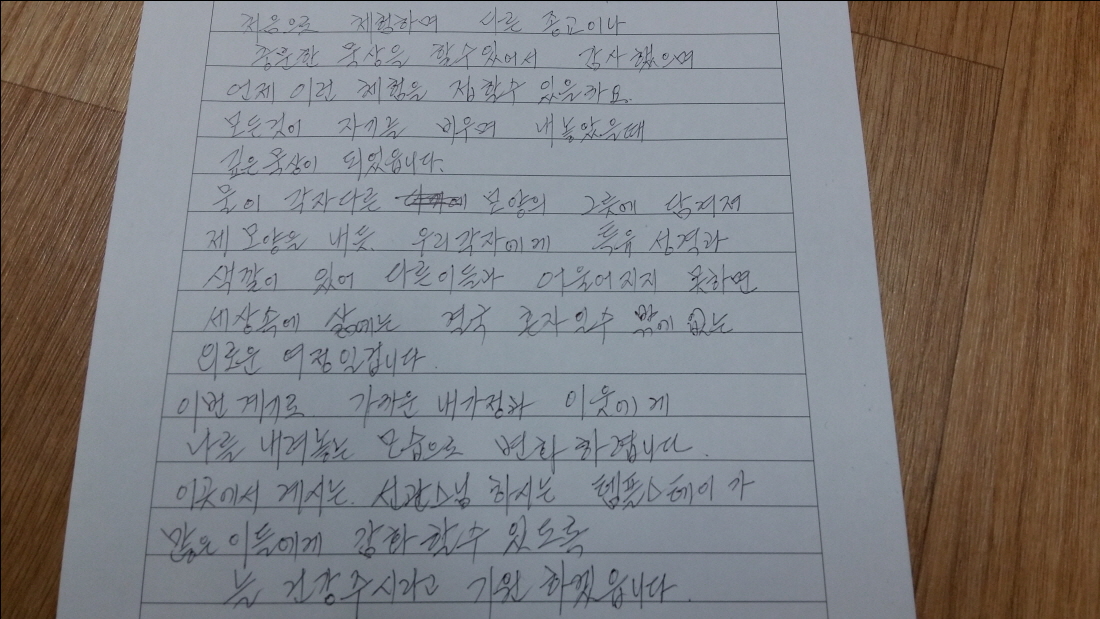 처음으로 체험하며 다른 종교이나
충분한 묵상을 할수있어서 감사했으며
언제 이런 체험을 접할수 있을까요.
모든것이 자기를 비우며 내놓았을때
깊은묵상이 되었읍니다.
물이 각자다른 모양의 그릇에 담겨져
제 모양을 내듯. 우리각자에게 특유 성격과
색깔이 있어 다른이들과 어울어지지 못하면
세상속에 삶에는 결국 혼자일수 밖에 없는
외로운 여정일겁니다.
이번 계기로 가까운 내가정과 이웃에게
나를 내려놓는 모습으로 변화 하렵니다.
이곳에서 계시는. 선관스님 하시는 템플스테이가
많은이들에게 강화 할수 있도록
늘 건강주시라고 기원 하겠읍니다.